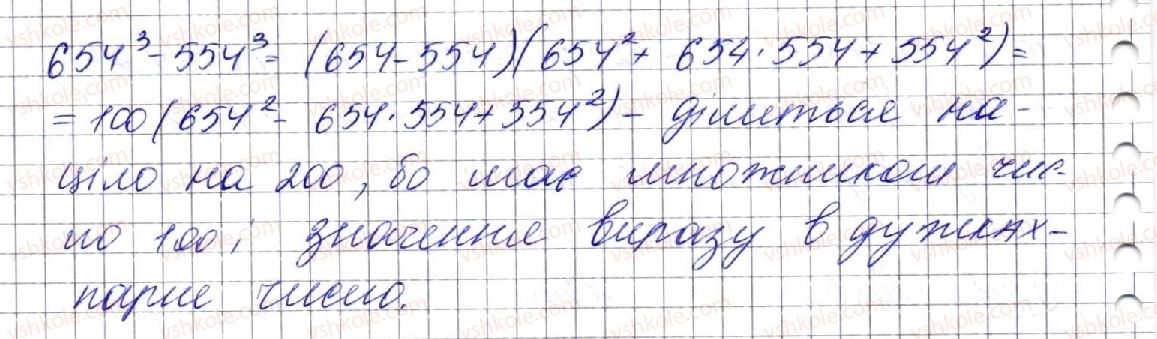 654³ - 554³ = (654 - 554)(654² + 654·554 + 554²) =
= 100(654² - 654·554 + 554²) - ділиться на-
ціло на 200, бо має множником чис-
ло 100, значення виразу в дужках -
парне число.